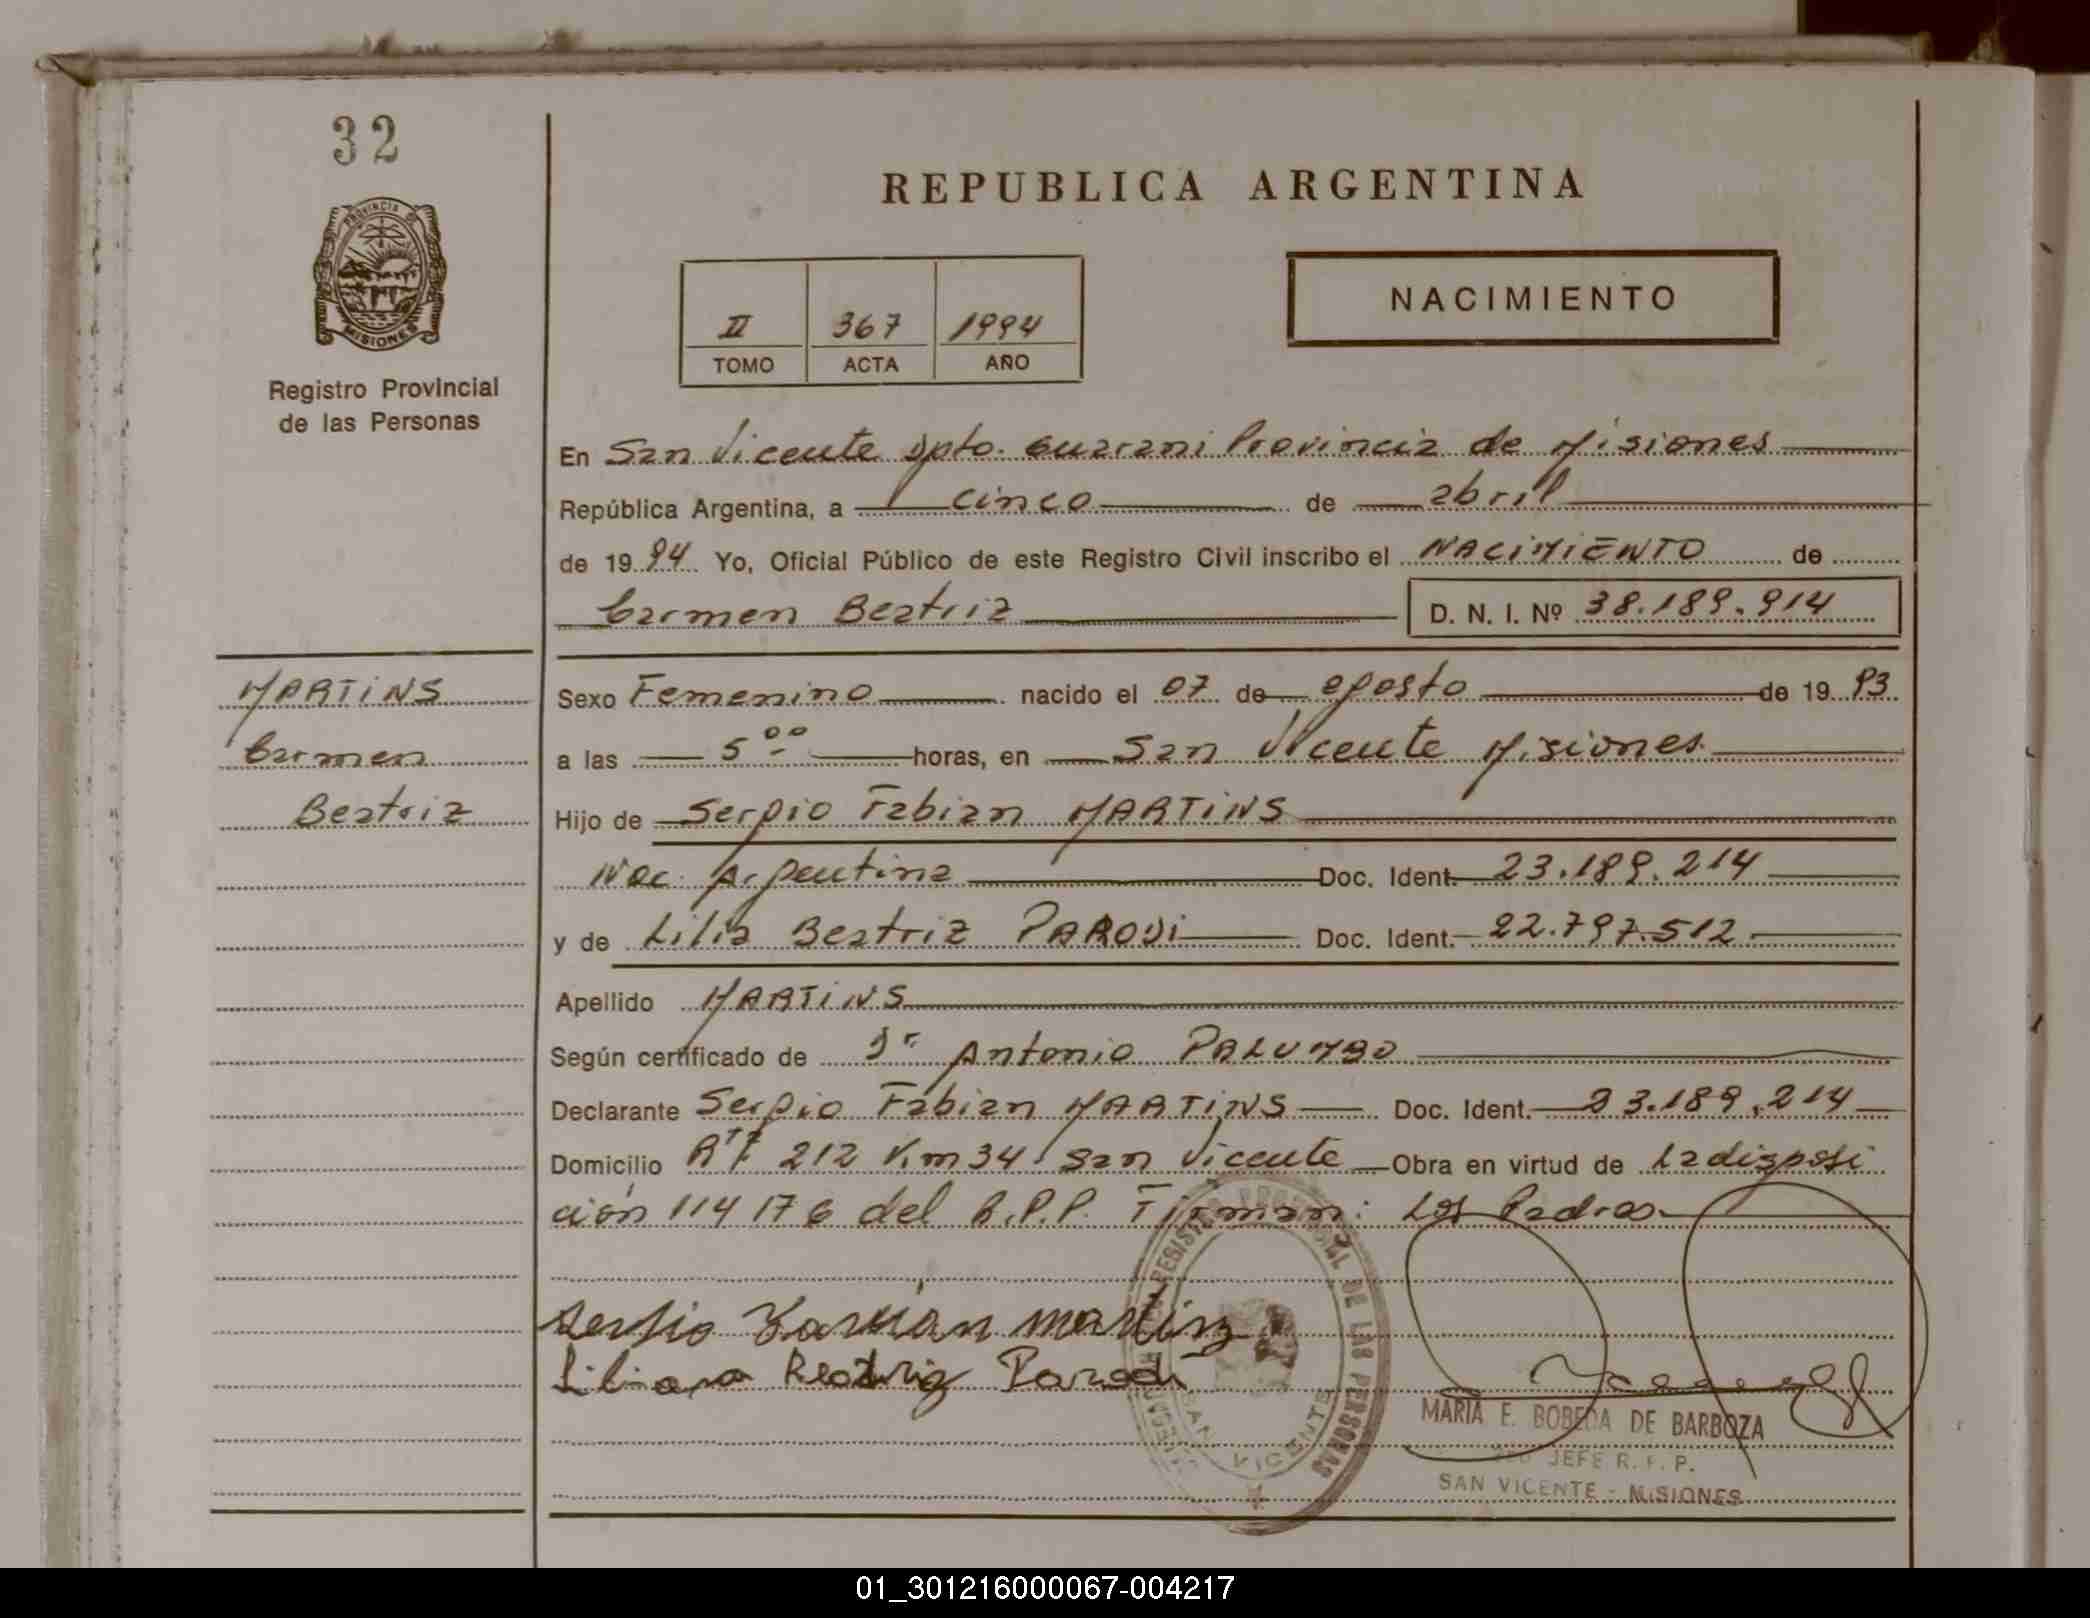 32
PROVINCIA DE
MISIONES
Registro Provincial
de las Personas
REPUBLICA ARGENTINA
II 367 1994
TOMO ACTA AÑO
NACIMIENTO
En San Vicente Dpto. Guarani Provincia de Misiones
República Argentina, a cinco de abril
de 1994 Yo, Oficial Público de este Registro Civil inscribo el NACIMIENTO de
Carmen Beatriz D. N. I. Nº 38.189.914
MARTINS
Carmen
Beatriz
Sexo Femenino nacido el 07 de agosto de 1993
a las 5 00 horas, en San Vicente Misiones
Hijo de Sergio Fabian MARTINS
Nac. Argentina Doc. Ident. 23.189.214
y de Lilia Beatriz PARODI Doc. Ident. 22.797.512
Apellido MARTINS
Según certificado de Dr Antonio PALUMBO
Declarante Sergio Fabian MARTINS Doc. Ident. 23.189.214
Domicilio 212 Km 34 San Vicente Obra en virtud de La disposi
ción 114 176 del R.P.P. Firman: Los Padres
Sergio Fabian Martins
Liliana Beatriz Parodi
REGISTRO PROVINCIAL DE LAS PERSONAS
SAN VICENTE
MARIA E. BOBEDA DE BARBOZA
JEFE R. P. P.
SAN VICENTE - MISIONES
01_301216000067-004217